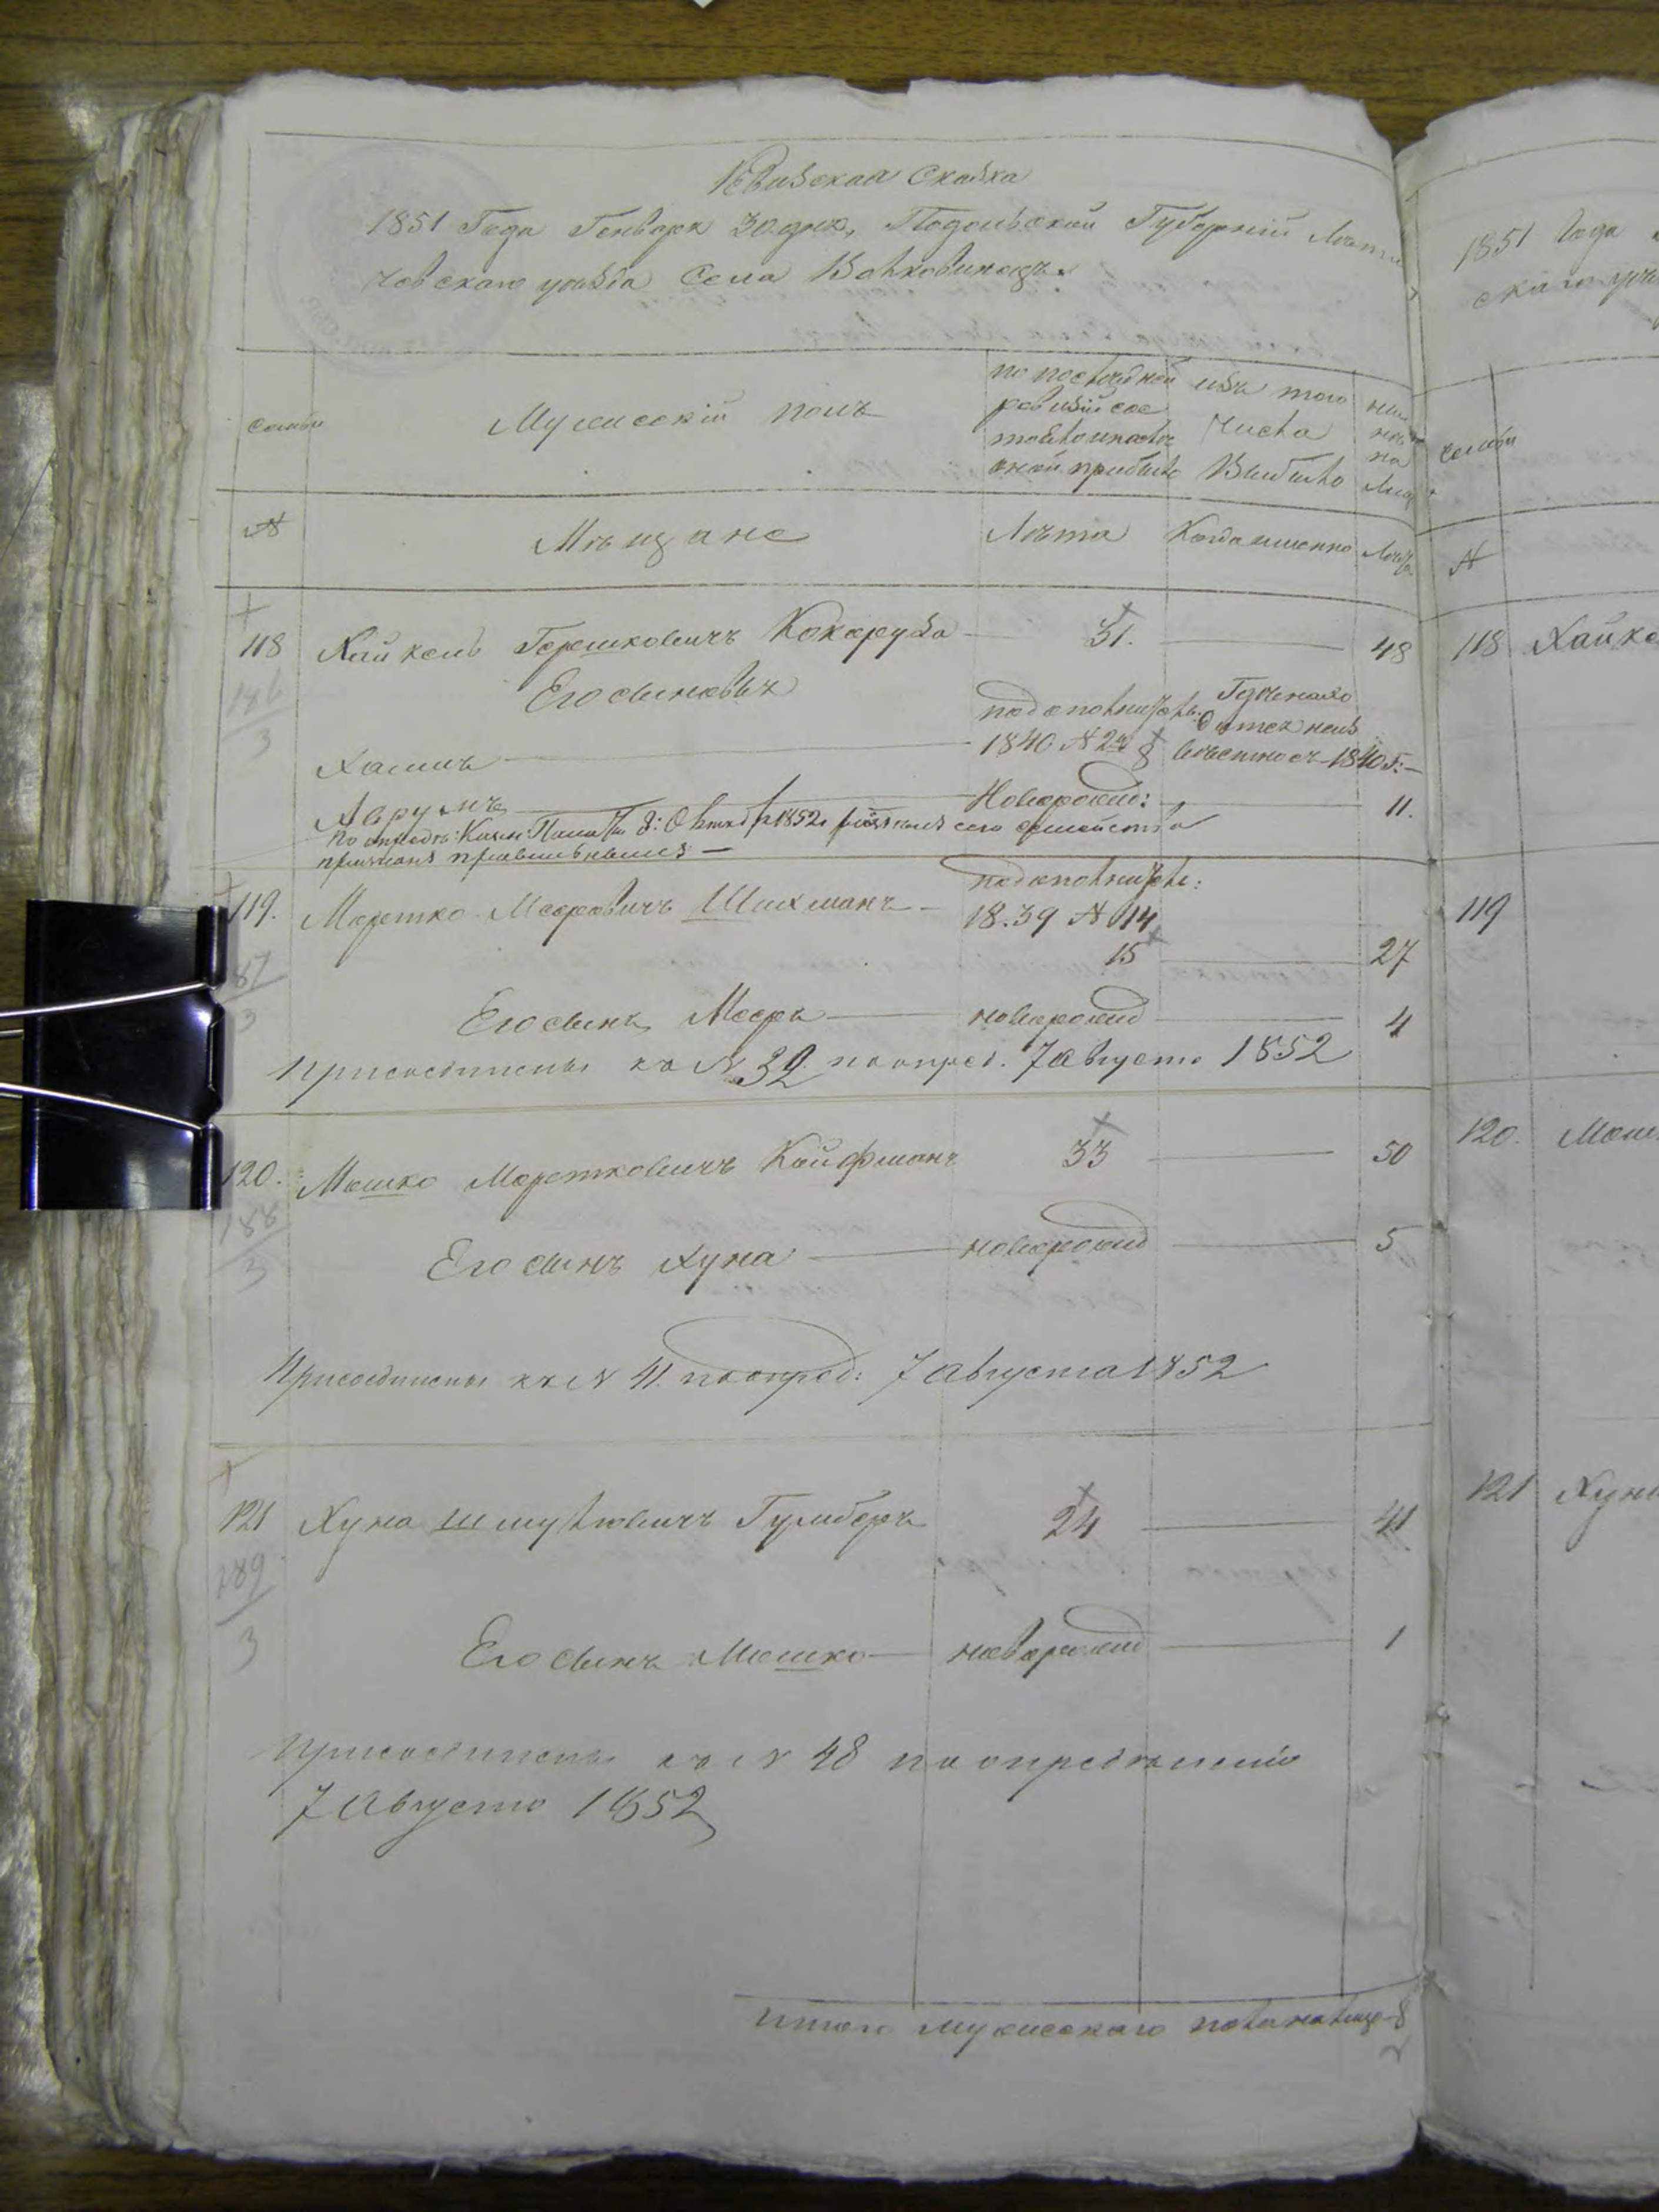 Ревизская Сказка
1851 Года Генваря 30 дня, Подольской Губернии Лети
човскаго уезда Села Волковинецъ
Семьи
Мужескій полъ
по последней
ревизіи сос
тояло и после
оной прибыло
изъ того
числа
Выбыло
ныне
на
лицо
№
Мѣщане
Лѣта
Когда именно
Лѣта
118 Хайкель Гершковичъ Кокаруза 31. 48
186
3
Его сыновья
Хаимъ
по дополнитель:
1840 № 2й 8
1840 г:
Аврумъ Новорожд: 11.
По опредѣ: Казен: Палаты 8: Октяб 1852 сего семейства
правильнымъ
119. Мортко Мееровичъ Шихманъ
87
3
по дополнитель:
18.39 № 14
15 27
Его сынъ Мееръ новорожд 4
Присоединены къ № 32 по опред. 7 августа 1852
120. Мошко Мортковичъ Кайфманъ 33 50
188
3
Его сынъ Хуна новорожд 5
Присоединены къ № 41. по опред: 7 августа 1852
121 Хуна Шмулювичъ Гумберъ 24 41
189
3
Его сынъ Мошко новорожд 1
Присоединены къ № 48 по определенію
7 Августа 1852
Итого мужескаго пола на лицо 8
1851 Года
скаго уѣз
семьи
№
118 Хайке
119
120. Мош
121 Хуна